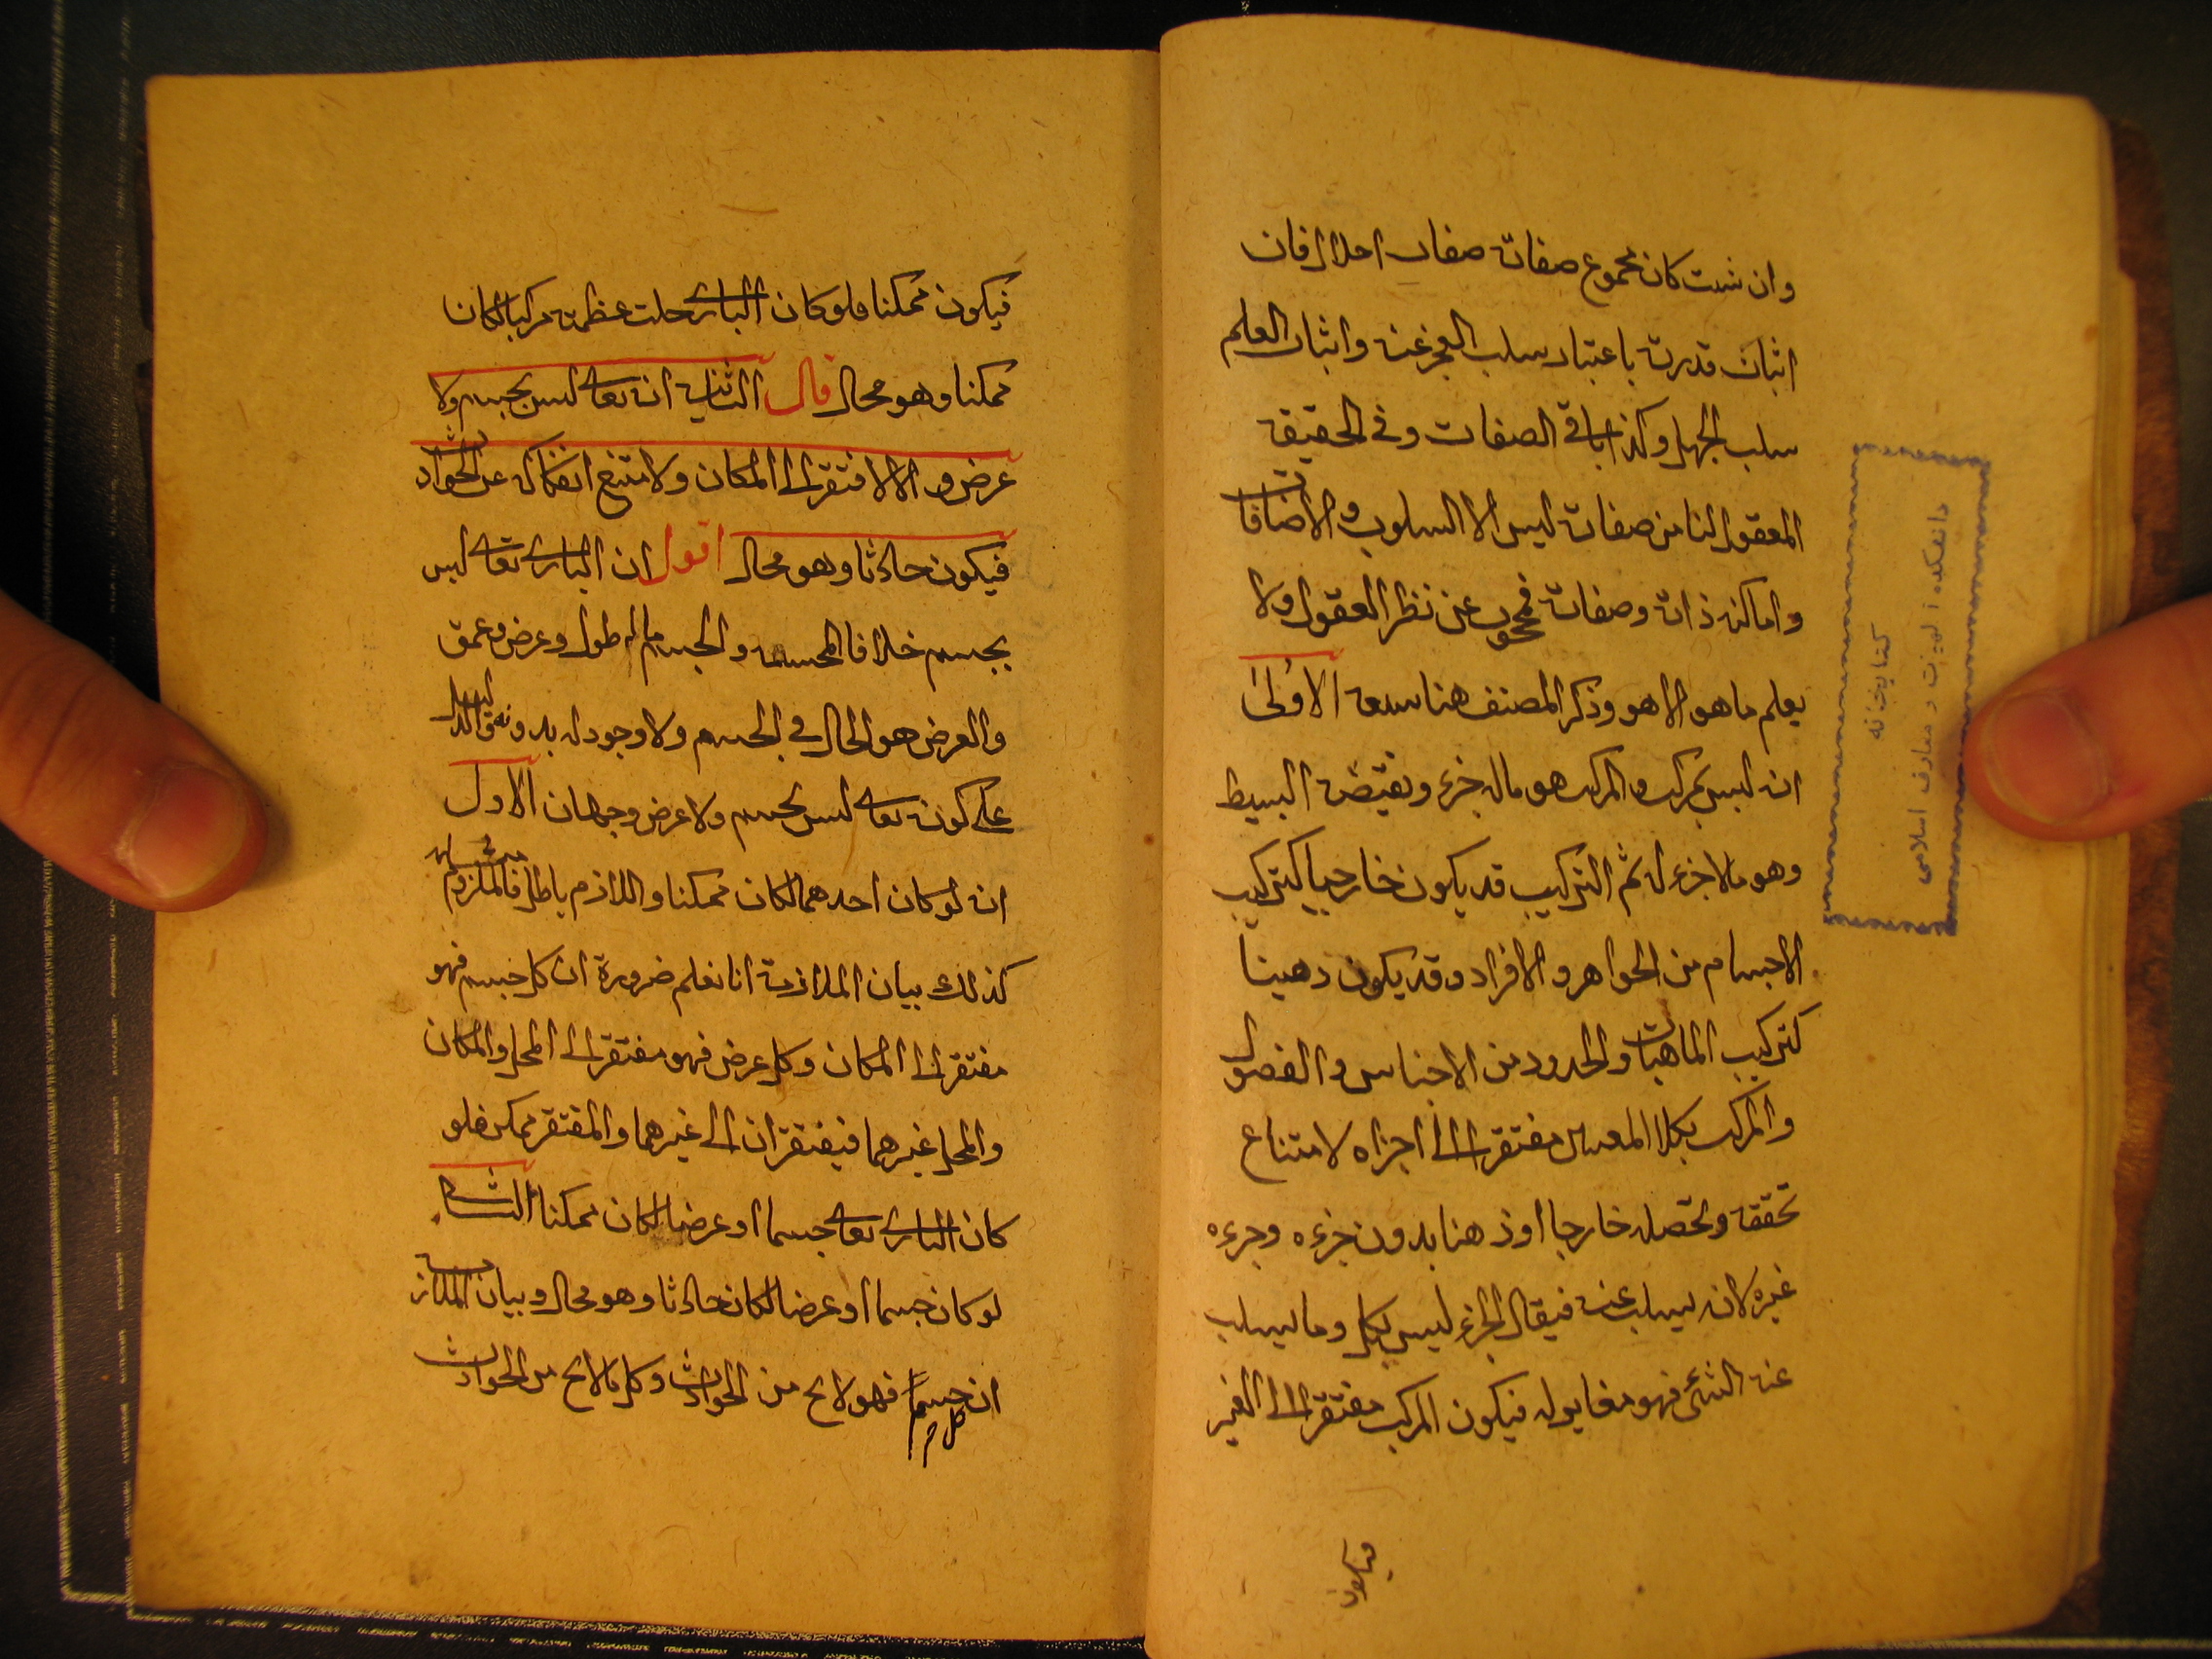 وان شئت كان مجموع صفاته صفات اجلال فان
اثبات قدرته باعتبار سلب العجز عنه واثبات العلم
سلب الجهل وكذا باقي الصفات وفي الحقيقة
المعقول لنا من صفاته ليس الا السلوب والاضافات
واما كنه ذاته وصفاته فمحجوب عن نظر العقول ولا
يعلم ما هو الا هو وذكر المصنف هنا سبعة الاولى
انه ليس بمركب والمركب هو ماله جزء ونقيضه البسيط
وهو مالا جزء له ثم التركيب قد يكون خارجيا كتركيب
الاجسام من الجواهر والافراد وقد يكون ذهينا
كتركيب الماهيات والحدود من الاجناس والفصول
والمركب بكلا المعنيين مفتقر الى اجزاه لامتناع
تحققه وتحصله خارجا اوذهنا بدون جزءه وجزءه
غيره لانه يسلب عنه فيقال الجزء ليس بكل وما يسلب
عنه الشئ فهو مغاير له فيكون المركب مفتقر الى الغير
فيكون
دانشكده الهيات و معارف اسلامى
كتابخانه
فيكون ممكنا فلو كان البارى جلت عظمته مركبا لكان
ممكنا وهو محال قال الثانية انه تعالى ليس بجسم ولا
عرض والا لافتقر الى المكان ولامتنع انفكاكه عن الحوادث
فيكون حادثا وهو محال اقول ان البارى تعالى ليس
بجسم خلافا للمجسمة والجسم ماله طول وعرض وعمق
والعرض هو الحال في الجسم ولا وجود له بدونه والدليل
على كونه تعالى ليس بجسم ولا عرض وجهان الاول
انه لو كان احدهما لكان ممكنا واللازم باطل فالملزوم مثله
كذلك بيان الملازمة انا نعلم ضرورة ان كل جسم فهو
مفتقر الى المكان وكل عرض فهو مفتقر الى المحل والمكان
والمحل غيرهما فيفتقران الى غيرهما والمفتقر ممكن فلو
كان البارى تعالى جسما او عرضا لكان ممكنا الثانى
لو كان جسما او عرضا لكان حادثا وهو محال وبيان الملازمة
ان كل جسم فهو لا يخ من الحوادث وكل مالا يخ من الحوادث